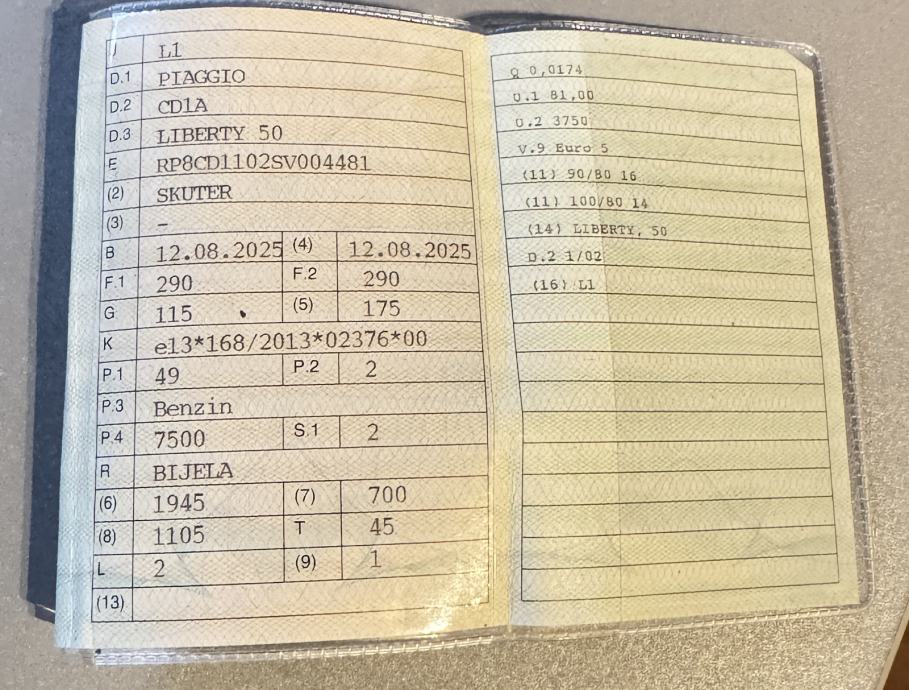 J L1
D.1 PIAGGIO
D.2 CD1A
D.3 LIBERTY 50
E RP8CD1102SV004481
(2) SKUTER
(3) –
B 12.08.2025 (4) 12.08.2025
F.1 290 F.2 290
G 115 (5) 175
K e13*168/2013*02376*00
P.1 49 P.2 2
P.3 Benzin
P.4 7500 S.1 2
R BIJELA
(6) 1945 (7) 700
(8) 1105 T 45
L 2 (9) 1
(13)
Q 0,0174
U.1 81,00
U.2 3750
V.9 Euro 5
(11) 90/80 16
(11) 100/80 14
(14) LIBERTY, 50
D.2 1/02
(16) L1